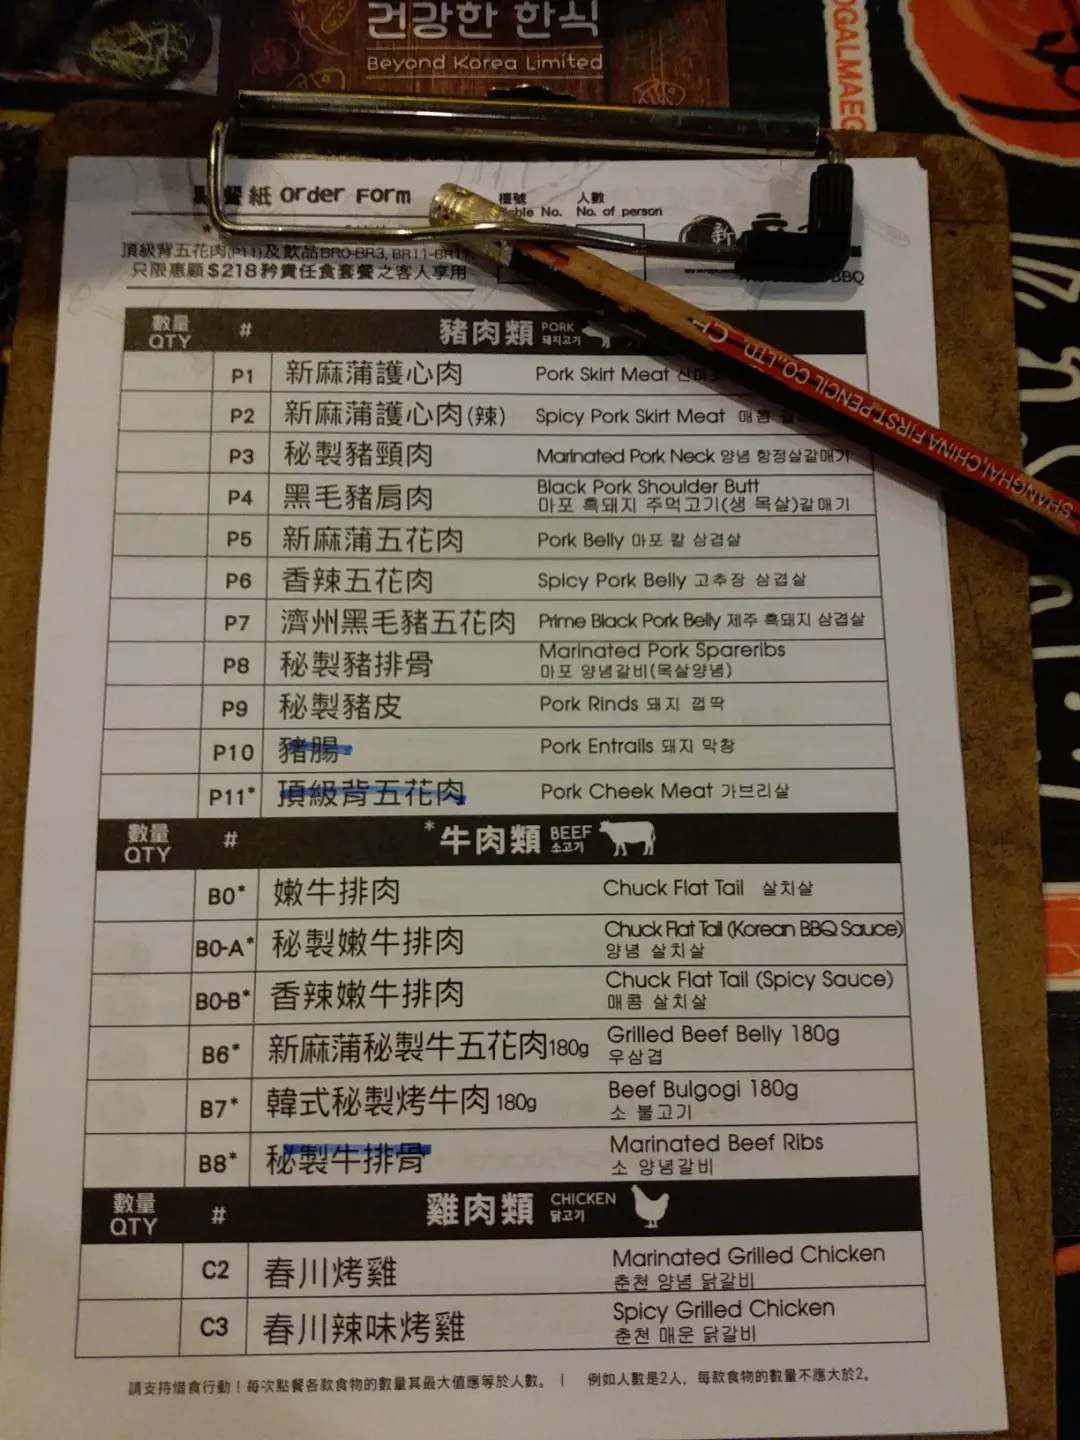 건강한 한식
Beyond Korea Limited
OGALMAEG
餐紙 Order Form
檯號 人數
Table No. No. of person
新
頂級背五花肉(P11)及飲品BR0-BR3, BR11-BR17,
只限惠顧$218矜貴任食套餐之客人享用
BBQ
SHANGHAI,CHINA FIRST PENCIL CO.,LTD. CH
數量 QTY # 豬肉類 PORK 돼지고기
P1 新麻蒲護心肉 Pork Skirt Meat
P2 新麻蒲護心肉(辣) Spicy Pork Skirt Meat 매콤
P3 秘製豬頸肉 Marinated Pork Neck 양념 항정살갈매기
P4 黑毛豬肩肉 Black Pork Shoulder Butt
마포 흑돼지 주먹고기(생 목살)갈매기
P5 新麻蒲五花肉 Pork Belly 마포 칼 삼겹살
P6 香辣五花肉 Spicy Pork Belly 고추장 삼겹살
P7 濟州黑毛豬五花肉 Prime Black Pork Belly 제주 흑돼지 삼겹살
P8 秘製豬排骨 Marinated Pork Spareribs
마포 양념갈비(목살양념)
P9 秘製豬皮 Pork Rinds 돼지 껍딱
P10 豬腸 Pork Entrails 돼지 막창
P11* 頂級背五花肉 Pork Cheek Meat 가브리살
數量 QTY # *牛肉類 BEEF 소고기
B0* 嫩牛排肉 Chuck Flat Tail 살치살
B0-A* 秘製嫩牛排肉 Chuck Flat Tail (Korean BBQ Sauce)
양념 살치살
B0-B* 香辣嫩牛排肉 Chuck Flat Tail (Spicy Sauce)
매콤 살치살
B6* 新麻蒲秘製牛五花肉180g Grilled Beef Belly 180g
우삼겹
B7* 韓式秘製烤牛肉 180g Beef Bulgogi 180g
소 불고기
B8* 秘製牛排骨 Marinated Beef Ribs
소 양념갈비
數量 QTY # 雞肉類 CHICKEN 닭고기
C2 春川烤雞 Marinated Grilled Chicken
춘천 양념 닭갈비
C3 春川辣味烤雞 Spicy Grilled Chicken
춘천 매운 닭갈비
請支持惜食行動！每次點餐各款食物的數量其最大值應等於人數。 | 例如人數是2人，每款食物的數量不應大於2。